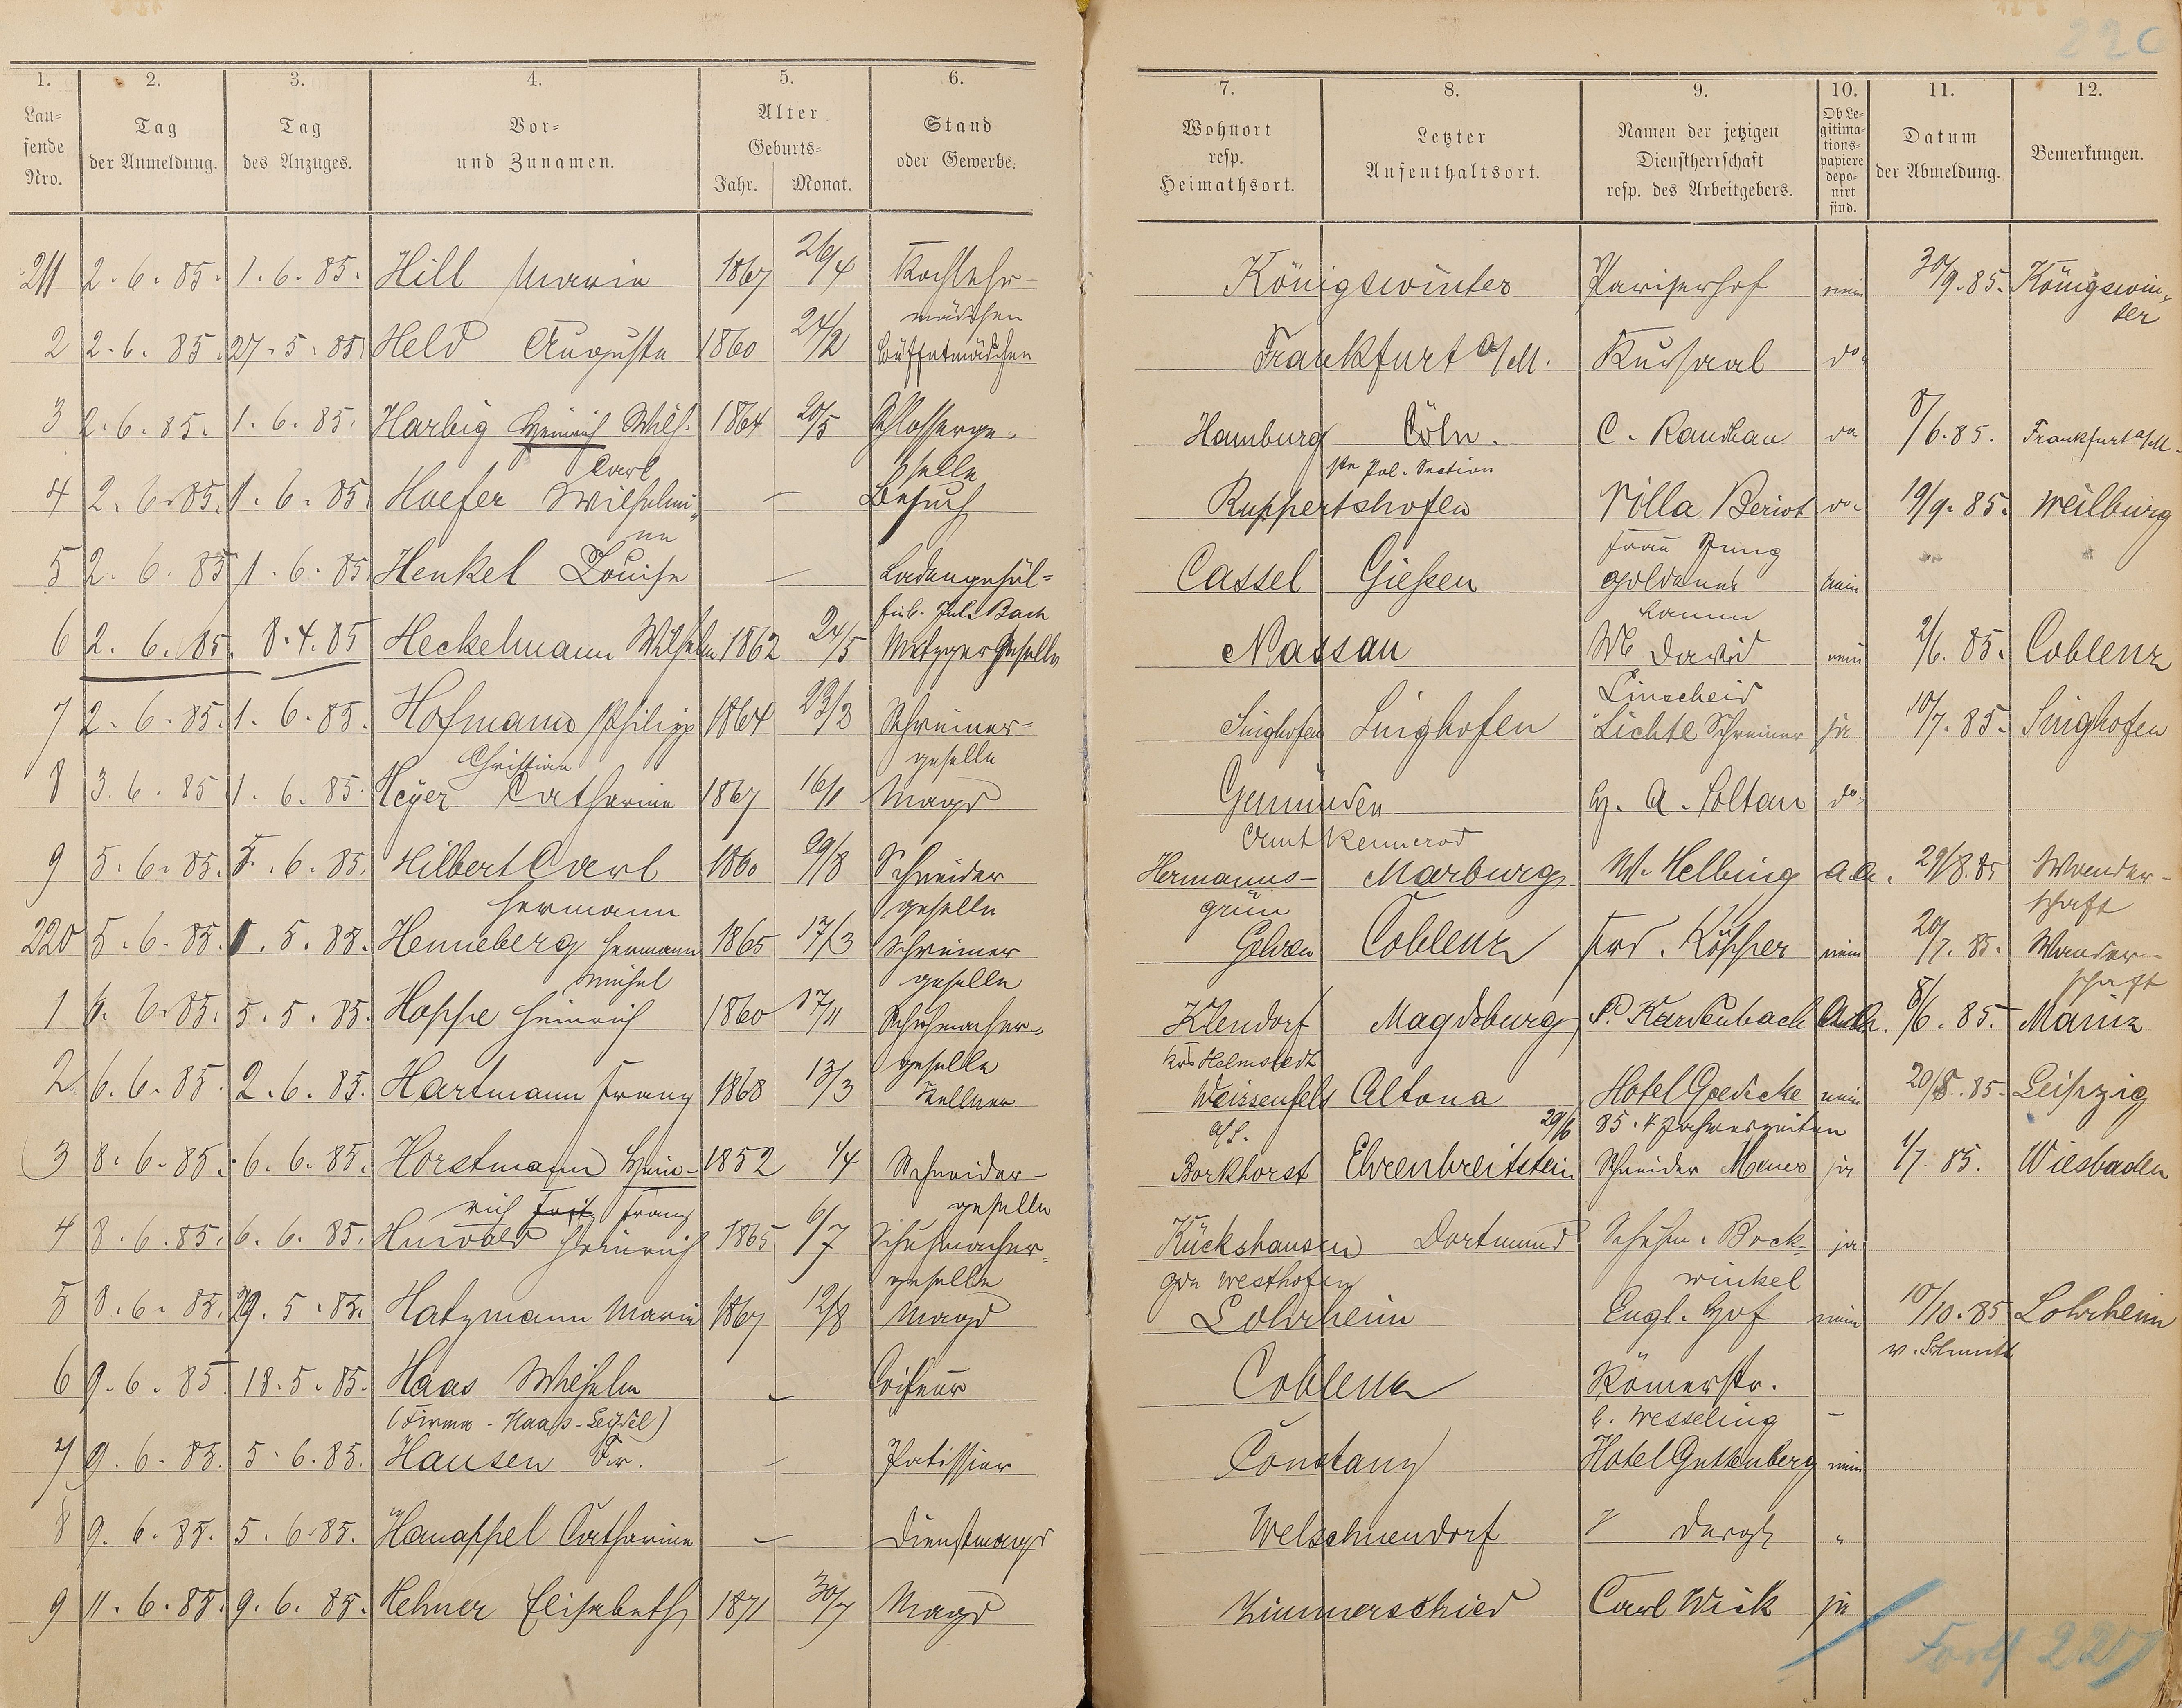 22c
1. 2. 3. 4. 5. 6. 7. 8. 9. 10. 11. 12.
Laufende Nro. Tag der Anmeldung. Tag des Anzuges. Vor- und Zunamen. Alter Geburts- Jahr. Monat. Stand oder Gewerbe. Wohnort resp. Heimathsort. Letzter Aufenthaltsort. Namen der jetzigen Dienstherrschaft resp. des Arbeitgebers. Ob Legitimationspapiere deponirt sind. Datum der Abmeldung. Bemerkungen.
211 2.6.85. 1.6.85. Hill Marie 1867 26/4 Kochlehr- Königswinter Pariserhof nein 30/9.85. Königswin-
mädchen ter
2 2.6.85. 27.5.85. Held Auguste 1860 24/2 Büffetmädchen Frankfurt a/M. Kursaal do
3 2.6.85. 1.6.85. Harbig Heinrich Wilh. 1864 20/5 Schlosserge- Hamburg Cöln. C. Randhau do 8/6.85. Frankfurt a/M.
Carl selle 1te Pol. Section
4 2.6.85. 1.6.85. Hoefer Wilhelmi- — Besuch Ruppertshofen Villa Beriot do. 19/9.85. Weilburg
ne Frau Jung
5 2.6.85 1.6.85 Henkel Louise — Ladengehül- Cassel Gießen goldenes nein
fin b. Jul. Bach Lamm
6 2.6.85. 8.4.85 Heckelmann Wilhelm 1862 24/5 Metzgergeselle Nassau We David nein 2/6.85. Coblenz
Linscheid
7 2.6.85. 1.6.85. Hofmann Philipp 1864 23/2 Schreiner- Singhofen Singhofen Lichte Schreiner ja 10/7.85. Singhofen
Christian geselle
8 3.6.85 1.6.85. Heyer Catharine 1867 16/1 Magd Gemünden H. A. Soltau do
Amt Rennerod
9 5.6.85. 5.6.85. Hilbert Carl 1860 29/8 Schneider Hermanns- Marburg W. Helbing a.a. 29/8.85 Wander-
Hermann geselle grün schaft
220 5.6.85. 5.5.85. Henneberg Hermann 1865 17/3 Schreiner Gehren Coblenz Frd. Köpper nein 20/7.85. Wander-
Michel geselle schaft
1 6.6.85. 5.5.85. Hoppe Heinrich 1860 17/11 Schuhmacher- Magdeburg P. Kardenbach 8/6.85. Mainz
geselle Krs Helmstedt
2 6.6.85. 2.6.85. Hartmann Franz 1868 13/3 Kellner Weissenfels Altona Hotel Goedicke nein 20/8.85. Leipzig
a/S. 29/6 85. 4 Jahreszeiten
3 8.6.85. 6.6.85. Horstmann Hein- 1852 1/4 Schneider- Borkhorst Ehrenbreitstein Schneider ja 1/7.85. Wiesbaden
rich Fritz Franz geselle
4 8.6.85. 6.6.85. Heinrich 1865 6/7 Schuhmacher- Rückshausen Dortmund Schuhm. Bock- ja
geselle Westhofen winkel
5 8.6.85. 29.5.85. Hatzmann Marie 1867 12/8 Magd Lohrheim Engl. Hof nein 10/10.85 Lohrheim
6 9.6.85. 18.5.85. Haas Wilhelm — Coifeur Coblenz Römerstr.
(Firma - Haas-Seidel) b. Wesseling —
7 9.6.85. 5.6.85. Hansen Fr. — Patissier Constanz Hotel Guttenberg nein
8 9.6.85. 5.6.85. Hanappel Catharine — Dienstmagd Welschneudorf " "
9 11.6.85. 9.6.85. Hehner Elisabeth 1871 30/7 Magd Zimmerschied Carl Wick ja
Forts 227